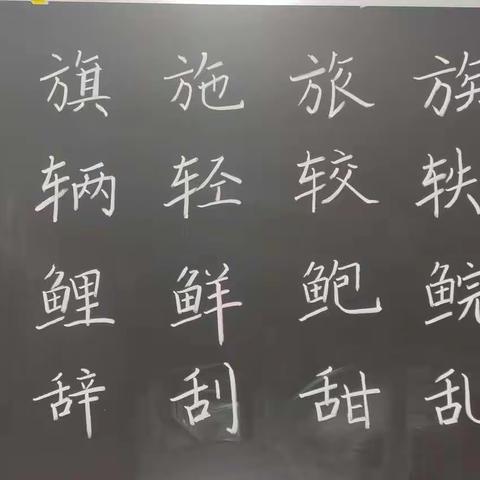 旗 施 旅 族
辆 轻 较 轶
鲤 鲜 鲍 鲩
辞 刮 甜 乱